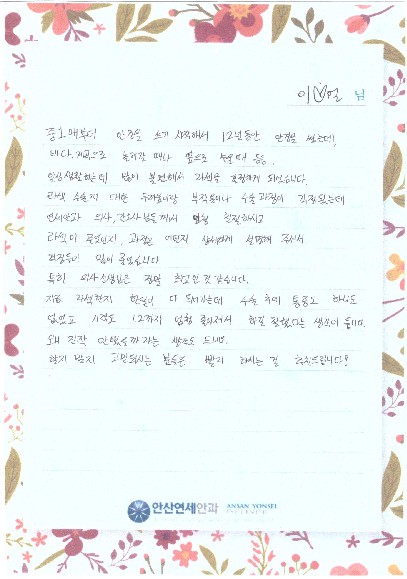 이♡연 님
중1때부터 안경을 쓰기 시작해서 12년동안 안경을 썼는데,
바다, 계곡으로 놀러갈 때나 옆으로 누울때 등등,
일상생활하는데 많이 불편해서 라섹을 결심하게 되었습니다.
라섹 수술에 대한 두려움이랑 부작용이나 수술과정이 걱정됐는데
연세안과 의사, 간호사분들께서 엄청 친절하시고
라섹이 무엇인지, 과정은 어떤지 상세하게 설명해 주셔서
걱정들이 많이 줄었습니다
특히 의사선생님은 정말 최고인 것 같습니다.
지금 라섹한지 한달이 다 되가는데 수술 후에 통증도 하나도
없었고 시력도 1.2까지 엄청 좋아져서 하길 잘했다는 생각이 듭니다.
왜 진작 안했을까 라는 생각도 드네요.
할지 말지 고민되시는 분들은 빨리 하시는 걸 추천드립니다!
안산연세안과 ANSAN YONSEI
EYE CENTER